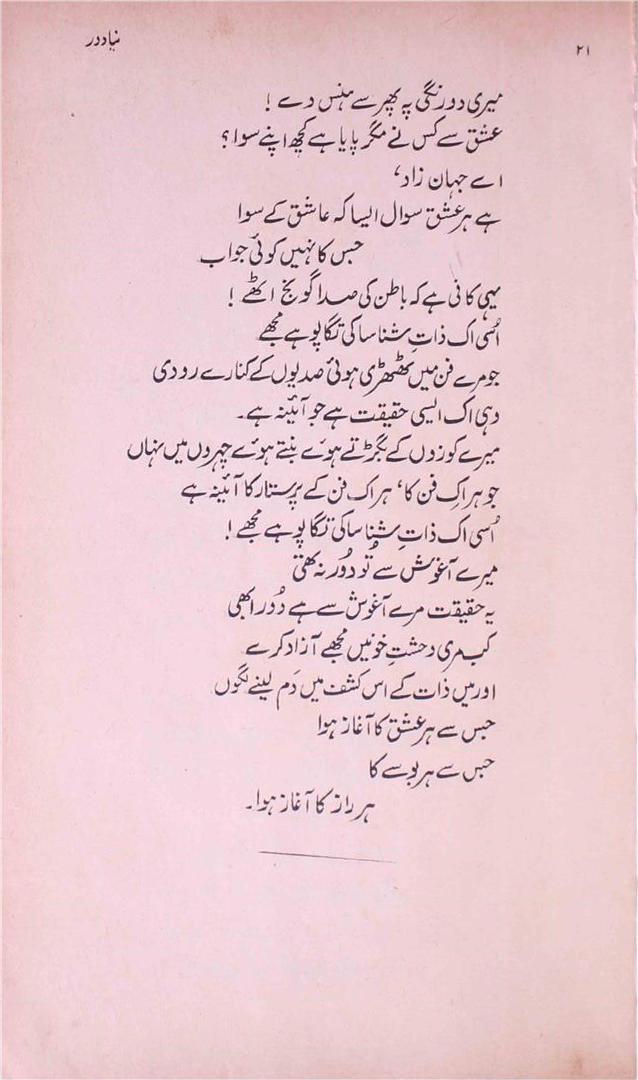 ۲۱
نیا دور
میری دورنگی پہ پھر سے ہنس دے !
عشق سے کس نے مگر پایا ہے کچھ اپنے سوا ؟
اے جہان زاد،
ہے ہر عشق سوال ایسا کہ عاشق کے سوا
جس کا نہیں کوئی جواب
یہی کافی ہے کہ باطن کی صدا گونج اٹھے !
اُسی اک ذاتِ شناسا کی تگاپو ہے مجھے
جو مرے فن میں ٹھٹھری ہوئی صدیوں کے کنارے رو دی
وہی اک ایسی حقیقت ہے جو آئینہ ہے۔
میرے کوزوں کے بگڑتے ہوئے بنتے ہوئے چہروں میں نہاں
جو ہر اک فن کا، ہر اک فن کے پرستار کا آئینہ ہے
اُسی اک ذاتِ شناسا کی تگاپو ہے مجھے !
میرے آغوش سے تُو دُور نہ تھی
یہ حقیقت مرے آغوش سے ہے دُور ابھی
کب مری دحشتِ خونیں مجھے آزاد کرے
اور میں ذات کے اس کشف میں دَم لینے لگوں
جس سے ہر عشق کا آغاز ہوا
جس سے ہر بوسے کا
ہر راز کا آغاز ہوا۔